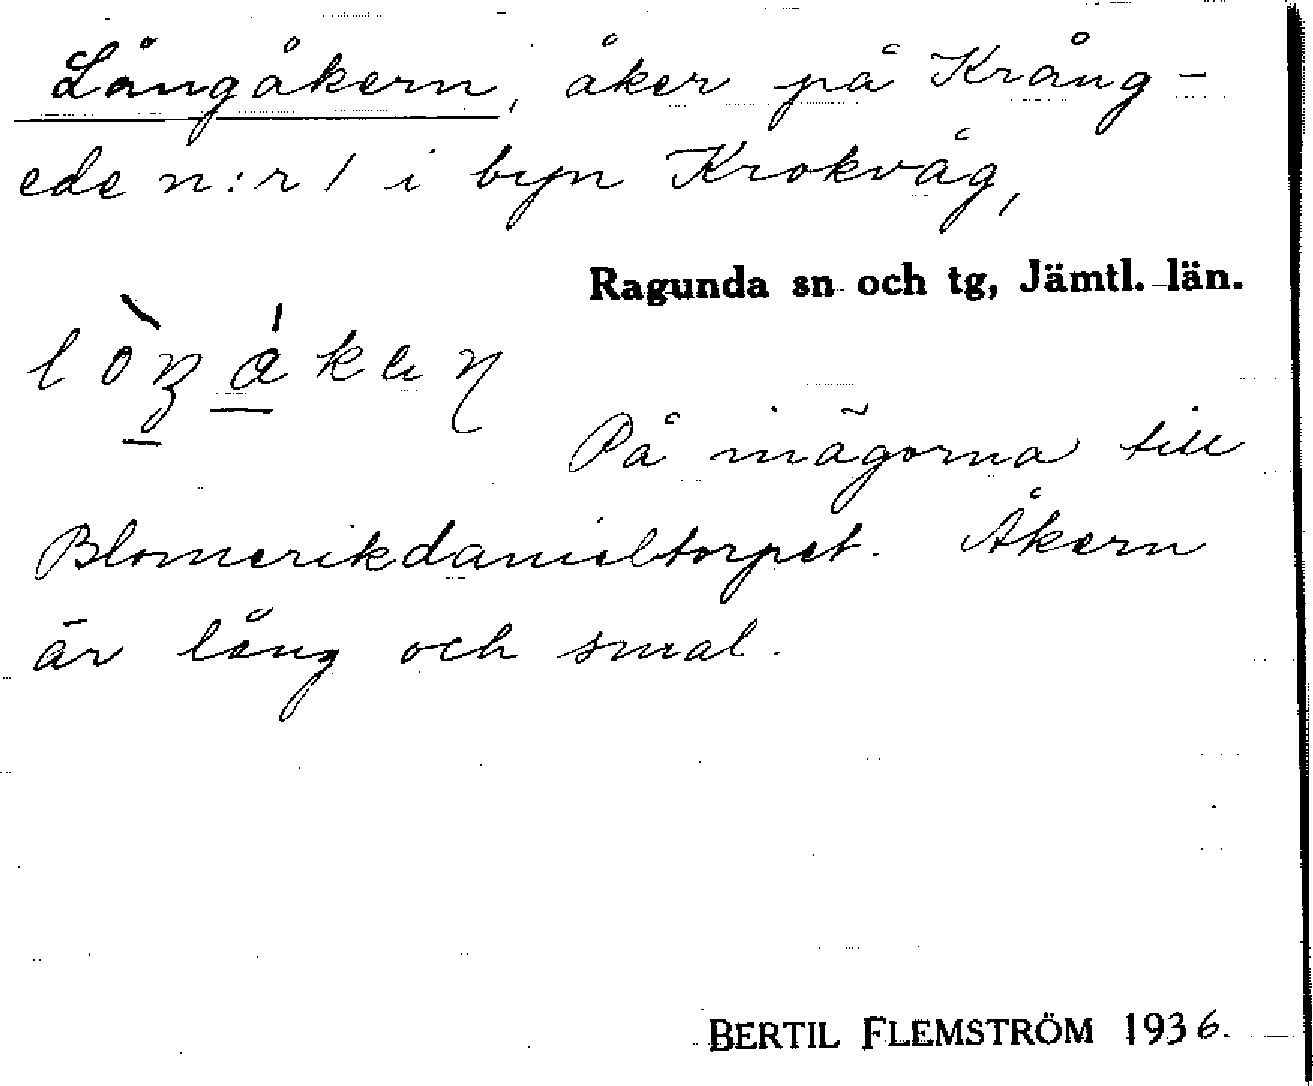 Långåkern, åker på Krång-
ede n:r 1 i byn Krokvåg,
Ragunda sn och tg, Jämtl. län.
På inägorna till
Blomerikdanieltorpet. Åkern
är lång och smal.
BERTIL FLEMSTRÖM 1936.